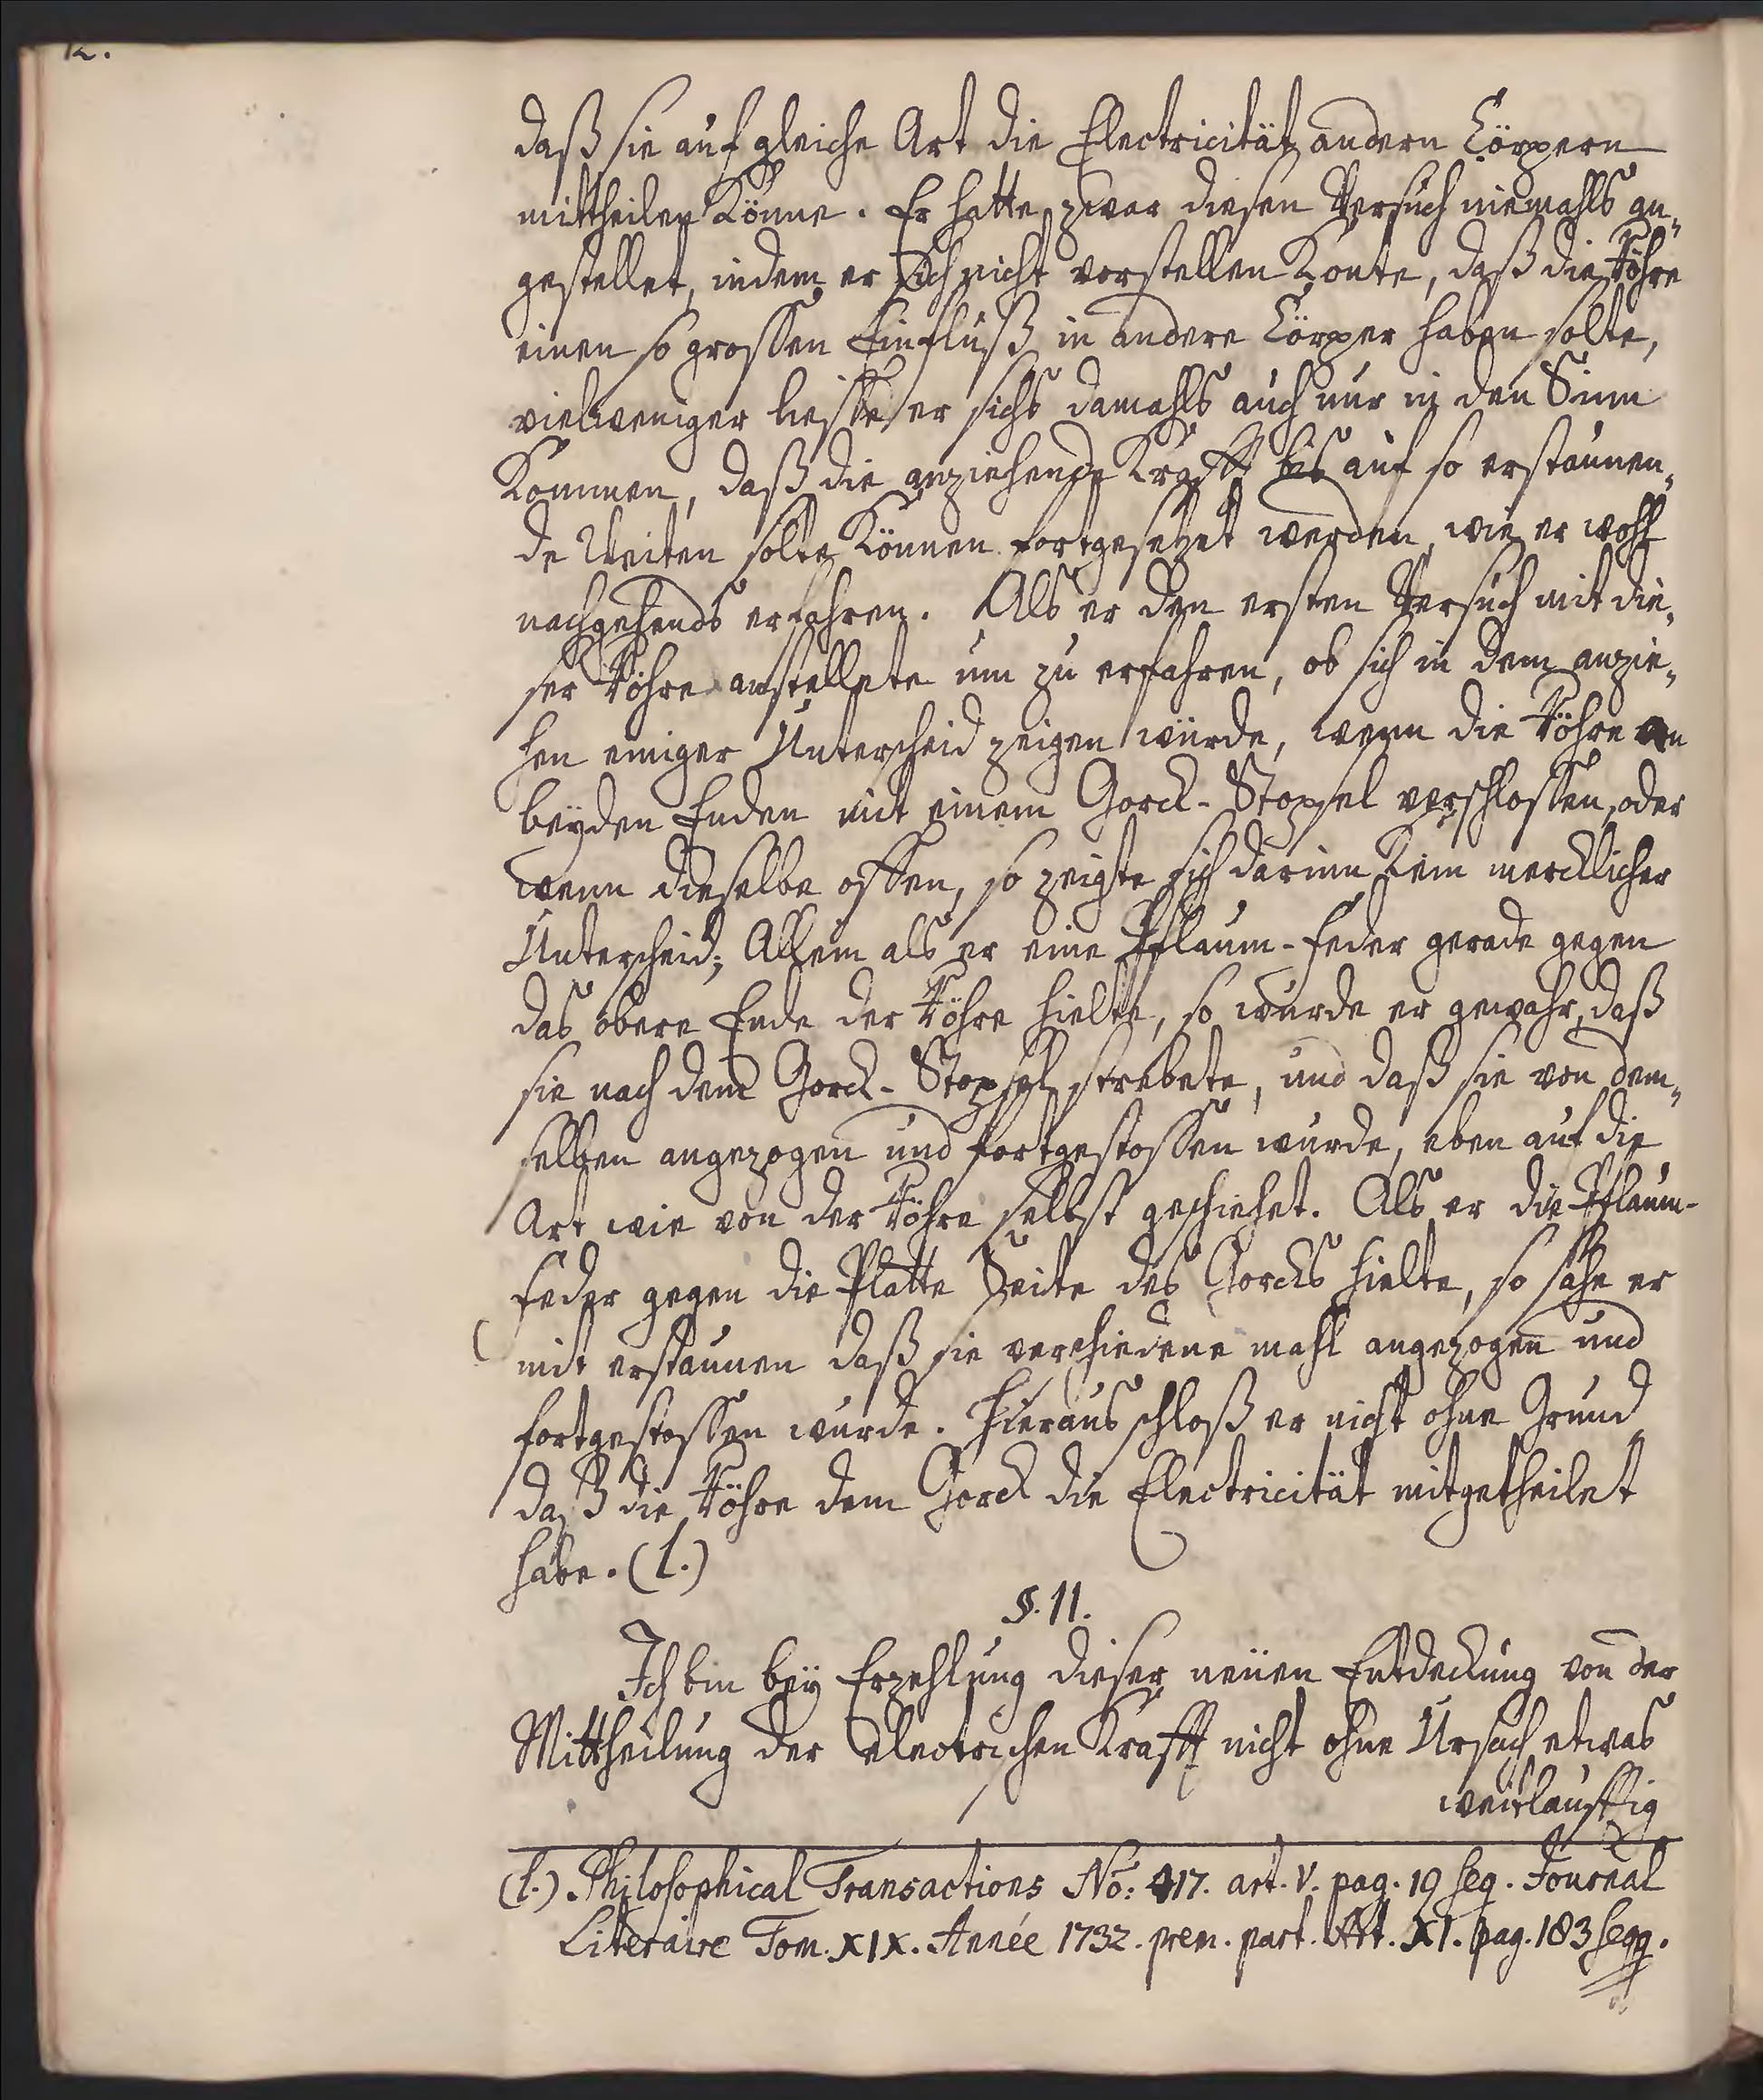 12.
daß sie auf gleiche Art die Electricität andern Cörpern
mittheilen Könne. Er hatte zwar diesen Versuch niemahls an„
gestellet, indem er sich nicht vorstellen Konte, daß die Röhre
einen so grossen Einfluß in andere Cörper haben solte,
vielweniger liesse er sichs damahls auch nur in den Sinn
Kommen, daß die anziehende Krafft bis auf so erstaunen„
de Weiten solte Können fortgesetzet werden, wie er wohl
nachgehends erfahren. Als er den ersten Versuch mit die„
ser Röhre anstellete um zu erfahren, ob sich in dem anzie„
hen einiger Unterscheid zeigen würde, wenn die Röhre an
beyden Enden mit einem Gorck-Stopsel verschlossen, oder
wenn dieselbe offen, so zeigte sich darinn Kein mercklicher
Unterscheid; Allein als er eine Pflaum-Feder gerade gegen
das obere Ende der Röhre hielte, so wurde er gewahr, daß
sie nach dem Gorck-Stopsel strebete, und daß sie von dem„
selben angezogen und fortgestossen wurde, eben auf die
Art wie von der Röhre selbst geschiehet. Als er die Pflaum-
Feder gegen die Platte Seite des Gorcks hielte, so sahe er
mit erstaunen daß sie verschiedene mahl angezogen und
fortgestossen wurde. Hieraus schloß er nicht ohne Grund
daß die Röhre dem Gorck die Electricität mitgetheilet
habe. (l.)
§. 11.
Ich bin bey Erzehlung dieser neuen Entdeckung von der
Mittheilung der electrischen Krafft nicht ohne Ursach etwas
weitläufftig
(l.) Philosophical Transactions No: 417. art. V. pag. 19 seq. Journal
Literaire Tom. XIX. Année 1732. prem. part. Art. XI. pag. 183 seqq.